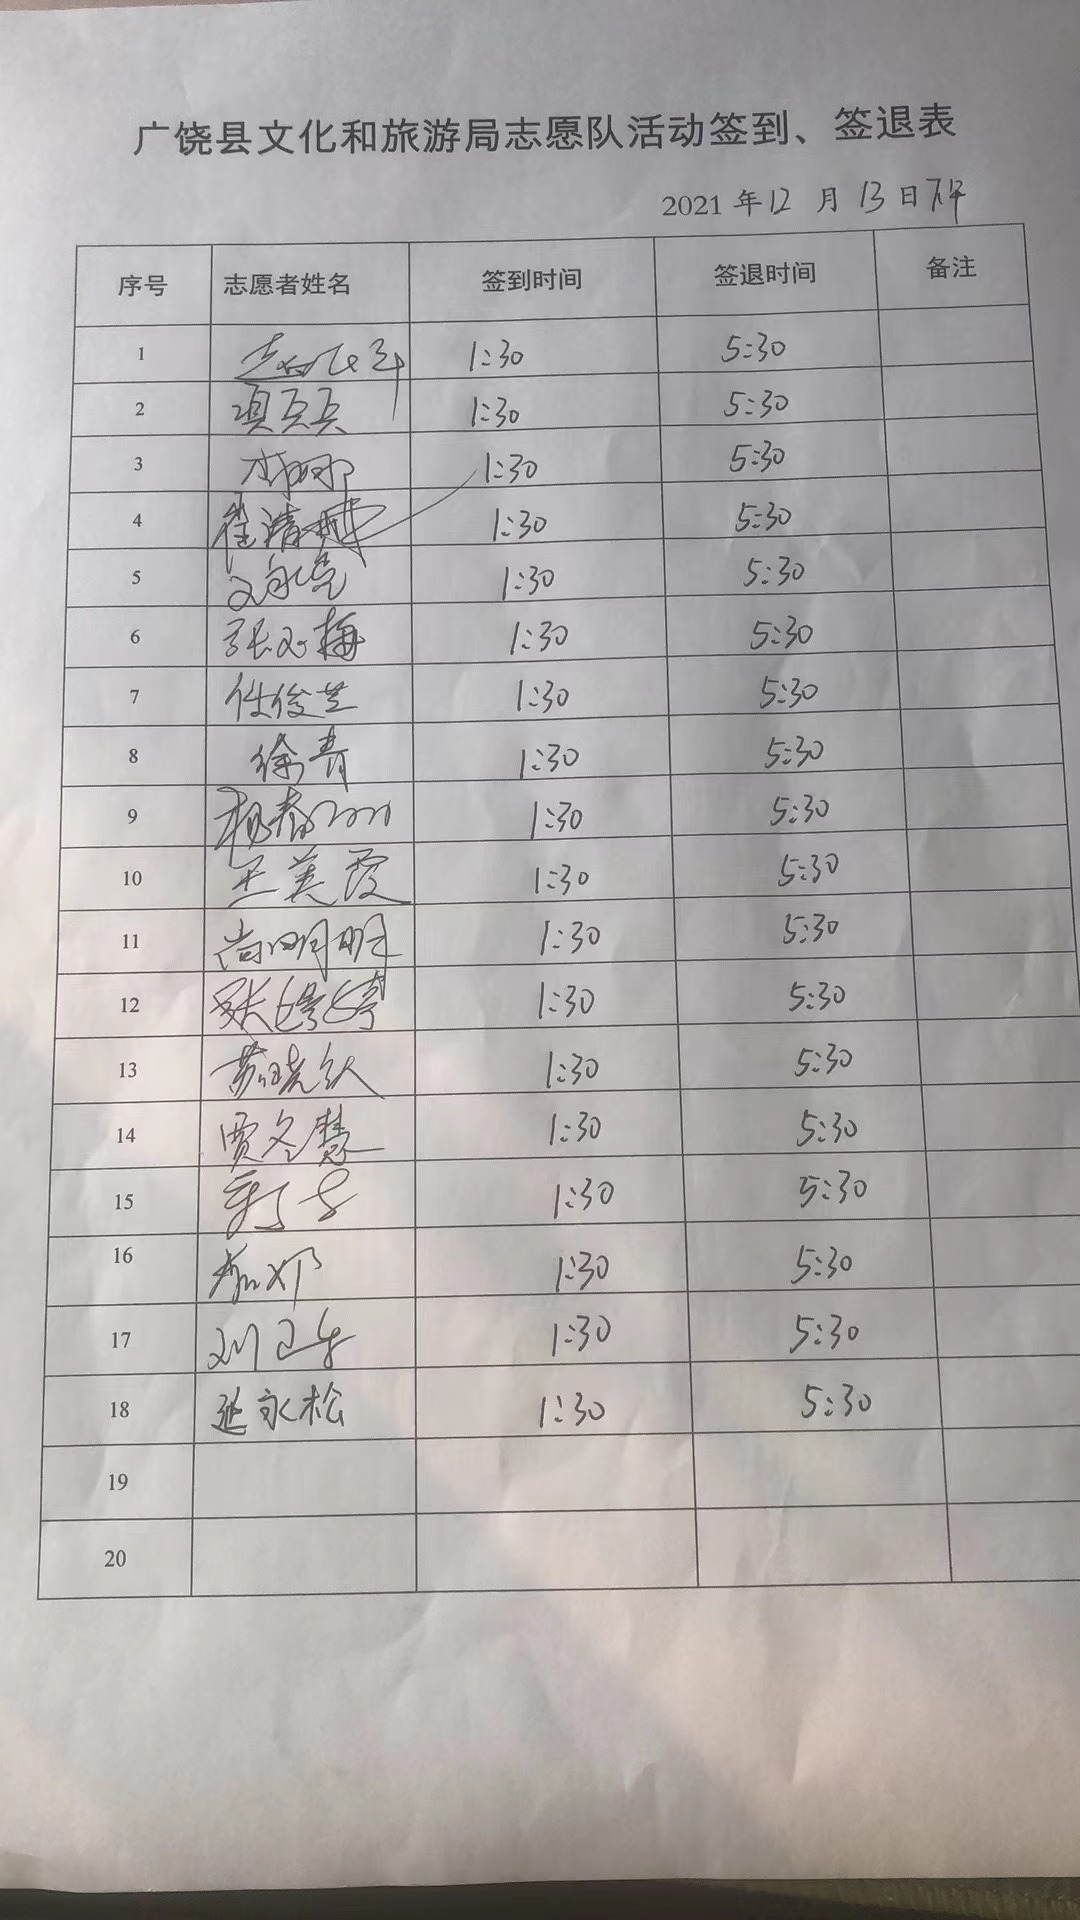 广饶县文化和旅游局志愿队活动签到、签退表
2021 年 12 月 13 日 下午
序号 志愿者姓名 签到时间 签退时间 备注
1 1:30 5:30
2 项兵兵 1:30 5:30
3 李娜 1:30 5:30
4 崔清 1:30 5:30
5 1:30 5:30
6 张冬梅 1:30 5:30
7 任俊芝 1:30 5:30
8 徐青 1:30 5:30
9 杨春 1:30 5:30
10 王美霞 1:30 5:30
11 尚明明 1:30 5:30
12 张婷婷 1:30 5:30
13 苏晓 1:30 5:30
14 贾冬慧 1:30 5:30
15 1:30 5:30
16 1:30 5:30
17 刘卫东 1:30 5:30
18 延永松 1:30 5:30
19
20